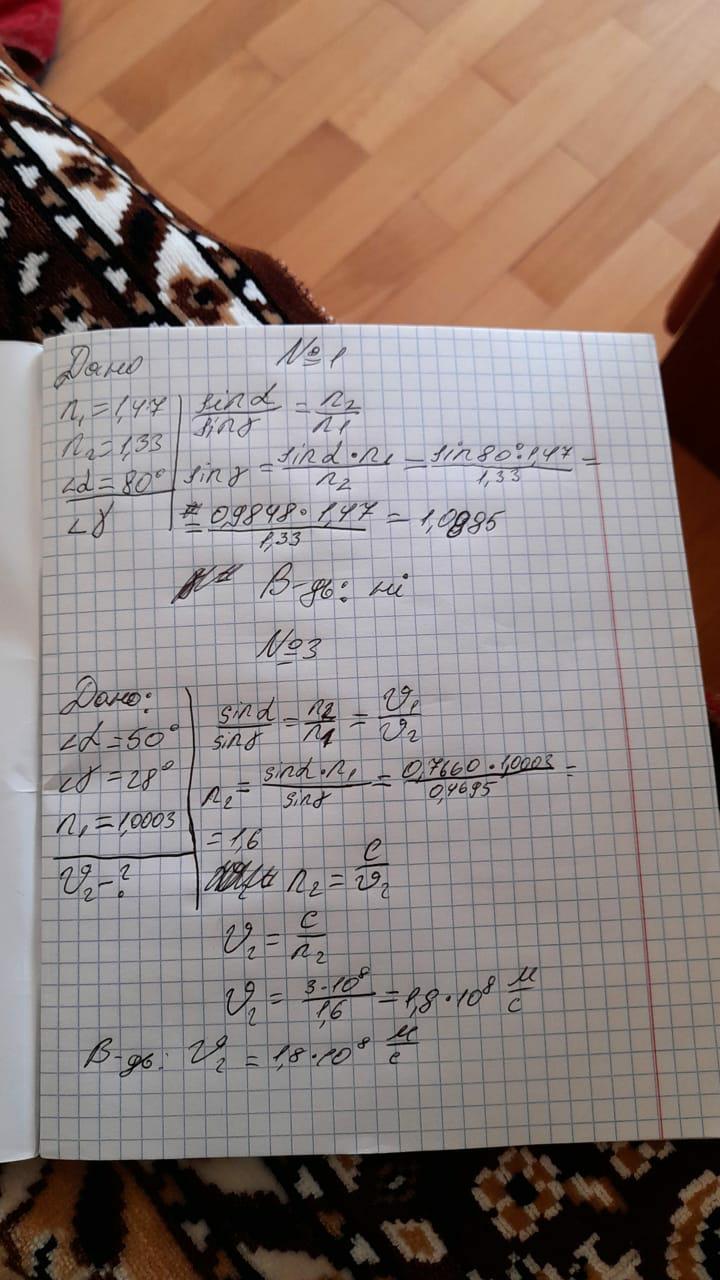 №1
Дано
n₁ = 1,47
n₂ = 1,33
∠α = 80°
∠γ
sinα/sinγ = n₂/n₁
sinγ = sinα · n₁/n₂ = sin80° · 1,47/1,33 =
= 0,9848 · 1,47/1,33 = 1,0995
В-дь: ні
№3
Дано:
∠α = 50°
∠γ = 28°
n₁ = 1,0003
ϑ₂ - ?
sinα/sinγ = n₂/n₁ = ϑ₁/ϑ₂
n₂ = sinα · n₁/sinγ = 0,7660 · 1,0003/0,4695 =
= 1,6
n₂ = c/ϑ₂
ϑ₂ = c/n₂
ϑ₂ = 3 · 10⁸/1,6 = 1,8 · 10⁸ м/с
В-дь: ϑ₂ = 1,8 · 10⁸ м/с